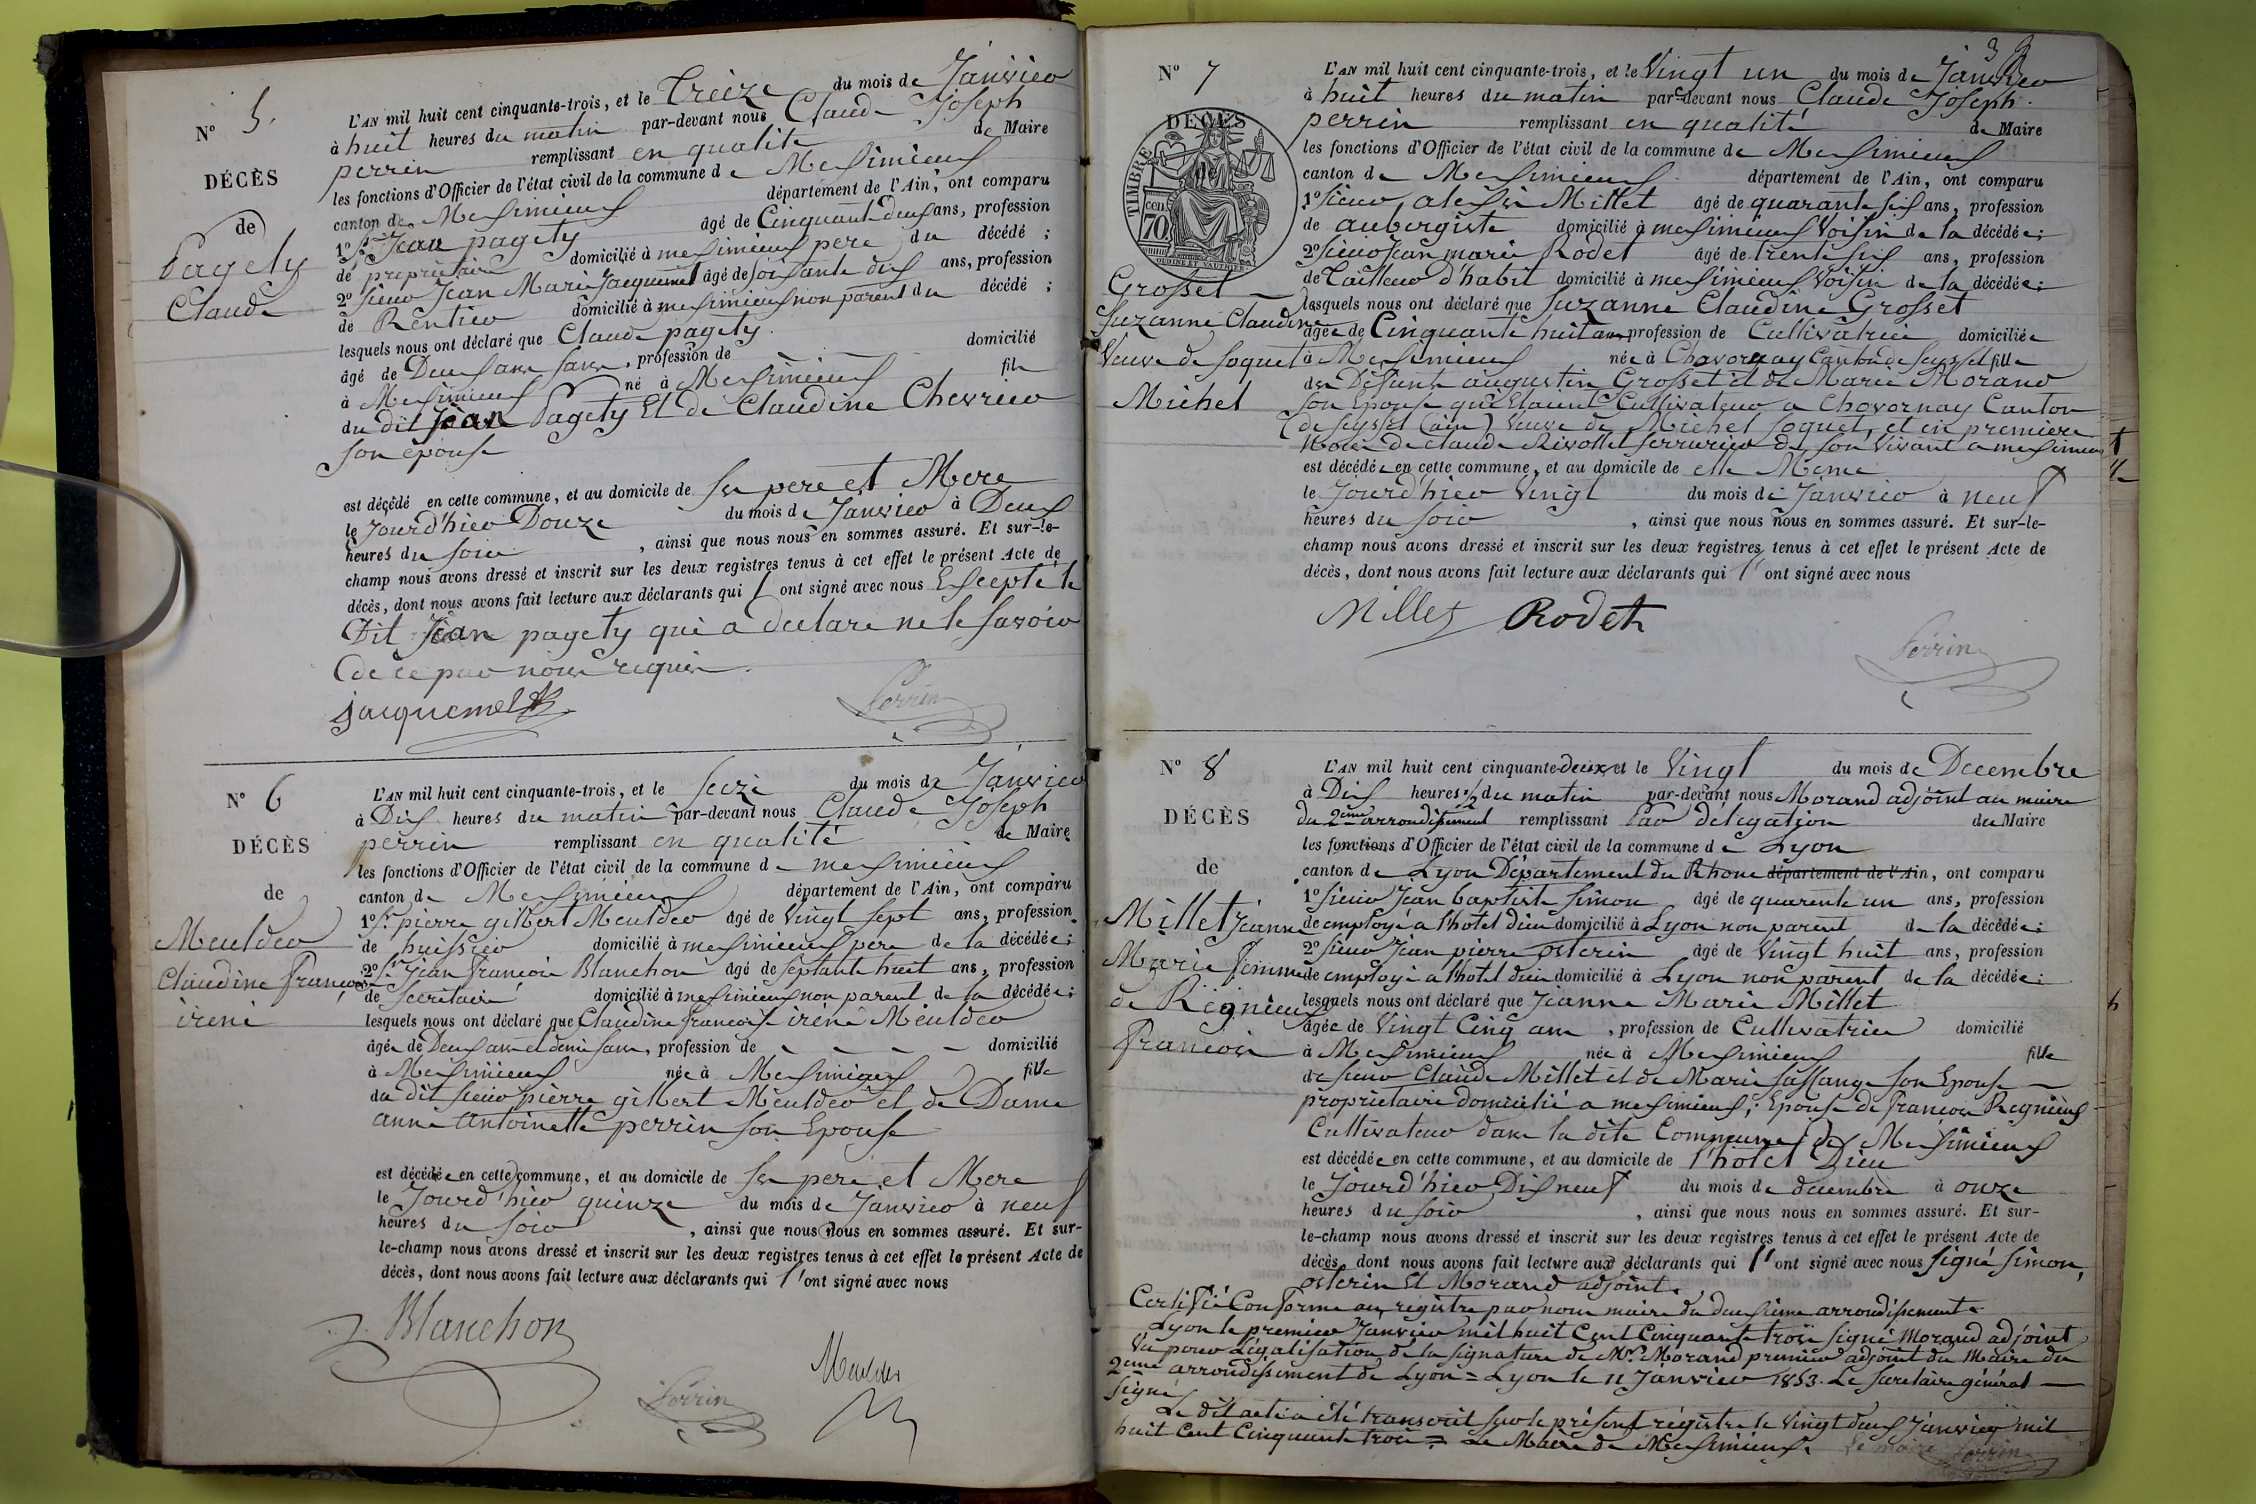 N° 5.
DÉCÈS
de
Pagety
Claude
L'AN mil huit cent cinquante-trois, et le Treize du mois de Janvier
à huit heures du matin par-devant nous Claude Joseph
perrin remplissant en qualité de Maire
les fonctions d'Officier de l'état civil de la commune de Meximieux
canton de Meximieux département de l'Ain, ont comparu
1° Sr Jean pagety âgé de Cinquante deux ans, profession
de propriétaire domicilié à meximieux pere du décédé ;
2° Sieur Jean Marie Jacquemet âgé de soixante dix ans, profession
de Rentier domicilié à meximieux non parent du décédé ;
lesquels nous ont déclaré que Claude pagety.
âgé de Deux ans sans, profession de domicilié
à Meximieux né à Meximieux fils
du dit Jean Pagety Et de Claudine Chevrier
son epouse
est décédé en cette commune, et au domicile de ses pere et Mere
le Jourd'hier Douze du mois de Janvier à Deux
heures du soir, ainsi que nous nous en sommes assuré. Et sur-le-
champ nous avons dressé et inscrit sur les deux registres tenus à cet effet le présent Acte de
décès, dont nous avons fait lecture aux déclarants qui l'ont signé avec nous Excepté le
Dit Jean pagety qui a declare ne le savoir
de ce par nous requis.
jacquemet
Perrin
N° 6
DÉCÈS
de
Meulder
Claudine françoise
iréné
L'AN mil huit cent cinquante-trois, et le seize du mois de Janvier
à Dix heures du matin par-devant nous Claude Joseph
perrin remplissant en qualité de Maire
les fonctions d'Officier de l'état civil de la commune de meximieux
canton de Meximieux département de l'Ain, ont comparu
1° Sr pierre gilbert Meulder âgé de Vingt sept ans, profession
de huissier domicilié à meximieux pere de la décédée ;
2° Sr Jean françois Blanchon âgé de septante huit ans, profession
de secrétaire domicilié à meximieux non parent de la décédée ;
lesquels nous ont déclaré que Claudine françoise iréné Meulder
âgée de Deux ans et demi sans, profession de - - - - domicilié
à Meximieux née à Meximieux fille
du dit sieur pierre gilbert Meulder et de Dame
anne antoinette perrin son Epouse
est décédée en cette commune, et au domicile de ses pere et Mere
le Jourd'hier quinze du mois de Janvier à neuf
heures du soir, ainsi que nous nous en sommes assuré. Et sur-
le-champ nous avons dressé et inscrit sur les deux registres tenus à cet effet le présent Acte de
décès, dont nous avons fait lecture aux déclarants qui l'ont signé avec nous
Blanchon
Perrin
Meulder
N° 7
DÉCÈS
de
TIMBRE
cen
70
OUDINÉ ET VAUTHIER
Grosset
Suzanne Claudine
Veuve de Soquet
Michel
L'AN mil huit cent cinquante-trois, et le Vingt un du mois de Janvier
à huit heures du matin par-devant nous Claude Joseph
perrin remplissant en qualité de Maire
les fonctions d'Officier de l'état civil de la commune de Meximieux
canton de Meximieux département de l'Ain, ont comparu
1° sieur alexis Millet âgé de quarante six ans, profession
de aubergiste domicilié à meximieux Voisin de la décédée ;
2° sieur Jean marie Rodet âgé de trente six ans, profession
de Tailleur d'habit domicilié à meximieux Voisin de la décédée ;
lesquels nous ont déclaré que Suzanne Claudine Grosset
âgée de Cinquante huit ans profession de Cultivatrice domiciliée
à Meximieux née à Chavornay Canton de Seyssel fille
des Défunts augustin Grosset et de Marie Morand
son Epouse qui Etaient Cultivateur a Chavornay Canton
de Seyssel (ain) Veuve de Michel Soquet, et en premiere
Noce de Claude Rivollet serrurier de son Vivant a meximieux
est décédée en cette commune, et au domicile de elle Meme
le Jourd'hier Vingt du mois de Janvier à neuf
heures du soir, ainsi que nous nous en sommes assuré. Et sur-le-
champ nous avons dressé et inscrit sur les deux registres tenus à cet effet le présent Acte de
décès, dont nous avons fait lecture aux déclarants qui l'ont signé avec nous
Millet Rodet
Perrin
N° 8
DÉCÈS
de
Millet Jeanne
Marie femme
de Régnieux
françois
L'AN mil huit cent cinquante-deux, et le Vingt du mois de Decembre
à Dix heures 1/2 du matin par-devant nous Morand adjoint au maire
du 2eme arrondissement remplissant Par délégation du Maire
les fonctions d'Officier de l'état civil de la commune de Lyon
canton de Lyon Département du Rhone département de l'Ain, ont comparu
1° sieur Jean baptiste simon âgé de quarente un ans, profession
de employé a l'hotel dieu domicilié à Lyon non parent de la décédée ;
2° sieur Jean pierre osterin âgé de Vingt huit ans, profession
de employé a l'hotel dieu domicilié à Lyon non parent de la décédée ;
lesquels nous ont déclaré que Jeanne Marie Millet
âgée de Vingt Cinq ans, profession de Cultivatrice domicilié
à Meximieux née à Meximieux fille
de sieur Claude Millet et de Marie Sallange son Epouse
propriétaire domicilié a meximieux; Epouse de françois Regnieux
Cultivateur dans la dite Commune de Meximieux
est décédée en cette commune, et au domicile de l'hotel Dieu
le Jourd'hier Dix neuf du mois de decembre à onze
heures du soir, ainsi que nous nous en sommes assuré. Et sur-
le-champ nous avons dressé et inscrit sur les deux registres tenus à cet effet le présent Acte de
décès, dont nous avons fait lecture aux déclarants qui l'ont signé avec nous signé simon,
osterin Et Morand adjoint.
Certifié Conforme aux registre par nous maire du deuxième arrondissement.
Lyon le premier Janvier mil huit Cent Cinquante trois signé Morand adjoint
Vu pour Légalisation de la signature de Mr. Morand premier adjoint du Maire du
2eme arrondissement de Lyon = Lyon le 11 Janvier 1853. Le secretaire général
signé
Le dit acte a été transcrit sur le présent régistre le Vingt deux Janvier mil
huit Cent Cinquante trois = Le Maire de Meximieux. Le maire Perrin